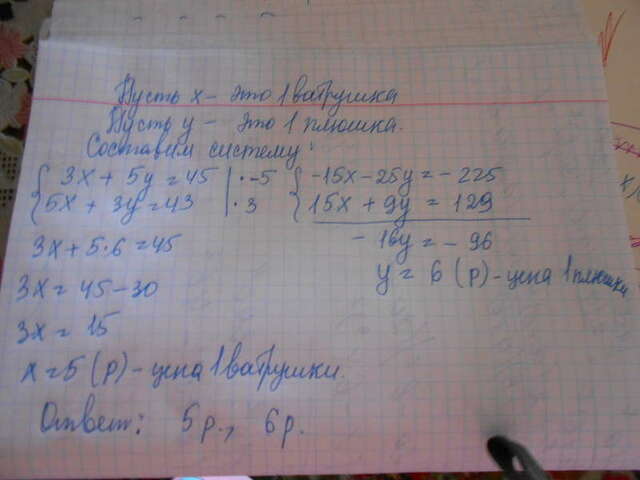 Пусть x - это 1 ватрушка
Пусть y - это 1 плюшка.
Составим систему:
{ 3x + 5y = 45 | · -5
5x + 3y = 43 | · 3
{ -15x - 25y = - 225
15x + 9y = 129
- 16y = - 96
y = 6 (р) - цена 1 плюшки
3x + 5·6 = 45
3x = 45 - 30
3x = 15
x = 5 (р) - цена 1 ватрушки.
Ответ: 5р., 6р.